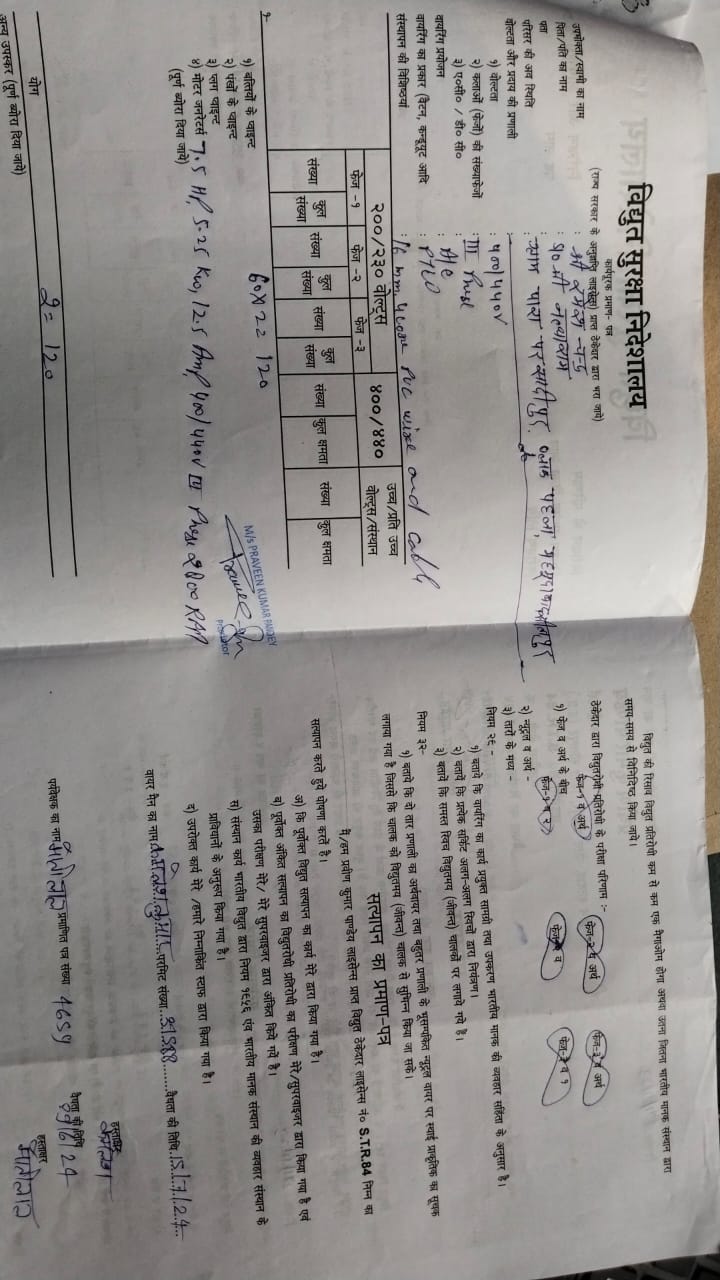 विद्युत सुरक्षा निदेशालय
कार्यपूरक प्रमाण- पत्र
(राज्य सरकार के अनुज्ञप्ति लाइसेंस) प्राप्त ठेकेदार द्वारा भरा जाये)
उपभोक्ता/स्वामी का नाम : श्री रमेश चन्द्र
पिता/पति का नाम : पु० श्री
पता : ग्राम
परिसर की अव स्थिति :
वोल्टता और प्रदाय की प्रणाली
१) वोल्टता : ४00/440V
२) कलाओं (फेजों) की संख्याफेजो : III Phase
३) ए०सी० / डी० सी० : A/C
वायरिंग प्रयोजन : P/W
वायरिंग का प्रकार (वैटन, कन्ड्यूट आदि : 16 mm 4 core PVC wire and cable
संस्थापन की विशिष्ठियां
२००/२३० वोल्ट्स ४००/४४० उच्च/प्रति उच्च वोल्ट्स/संस्थान
फेज -१ फेज -२ फेज -३
संख्या कुल संख्या संख्या कुल संख्या संख्या कुल संख्या संख्या कुल क्षमता संख्या कुल क्षमता
१-
१) बत्तियों के प्वाइन्ट 60X2= 120
२) पंखों के प्वाइन्ट
३) प्लग प्वाइन्ट
४) मोटर जनरेटर्स 7.5 HP, 5.25 Kw, 12.5 Amp 400/440V III Phase 2800 RAP
(पूर्ण ब्योरा दिया जाये)
M/s PRAVEEN KUMAR PANDEY
Proprietor
योग 2= 120
अन्य उपस्कर (पूर्ण ब्योरा दिया जाये)
विद्युत की रिसाव विद्युत प्रतिरोधी कम से कम एक मैगाओम होगा अथवा उतन जितना भारतीय मानक संस्थान द्वारा
समय-समय से विनिदिष्ठ किया जाये।
ठेकेदार द्वारा विद्युतरोधी प्रतिरोधी के परीक्षा परिणाम :-
फेज-१ व अर्थ फेज-२ व अर्थ फेज-३ व अर्थ
१) फेज व अर्थ के बीच
फेज-१ व २ फेज-२ व फेज-३ व १
२) न्यूट्रल व अर्थ -
३) तारों के मध्य -
नियम २६ -
१) बतायें कि वायरिंग का कार्य प्रयुक्त सामग्री तथा उपकरण भारतीय मानक की व्यवहार संहिता के अनुसार है।
२) बतायें कि प्रत्येक सर्किट अलग-अलग स्विचों द्वारा नियंत्रण।
३) बतायें कि समस्त स्विच विद्युतमय (जीवन्त) चालकों पर लगाये गये है।
नियम ३२-
१) बतायें कि दो तार प्रणाली का अर्थवायर तथा बहुतार प्रणाली के भूसम्पर्कित न्यूट्रल वायर पर स्थाई प्राकृतिक का सूचक
लगाया गया है जिससे कि चालक को विद्युतमय (जीवन्त) चालक से सुभिन्न किया जा सके।
सत्यापन का प्रमाण-पत्र
मै/हम प्रवीण कुमार पाण्डेय लाइसेन्स प्राप्त विद्युत ठेकेदार लाइसेन्स नं० S.T.R.84 निम्न का
सत्यापन करते हुये घोषणा करते हैं।
अ) कि पूर्वोक्त विद्युत सत्यापन का कार्य मेरे द्वारा किया गया है।
ब) पूर्वोक्त अंकित सत्यापन का विद्युतरोधी प्रतिरोधी का परीक्षण मेरे/सुपरवाइजर द्वारा किया गया है एवं
उसका परीक्षण मेरे/ मेरे सुपरवाइजर द्वारा अंकित किये गये है।
स) संस्थान कार्य भारतीय विद्युत द्वारा नियम १९५६ एवं भारतीय मानक संस्थान की व्यवहार संस्थान के
प्राविधानों के अनुरूप किया गया है।
द) उपरोक्त कार्य मेरे /हमारे निम्नांकित स्टाफ द्वारा किया गया है।
वायर मैन का नाम कमलेश कुमार परमिट संख्या वैधता की तिथि 15/7/24
हस्ताक्षर
कमलेश
पर्यवेक्षक का नाम मोतीलाल प्रमाणित पत्र संख्या 4659 वैधता की तिथि 29/6/24
हस्ताक्षर
मोतीलाल